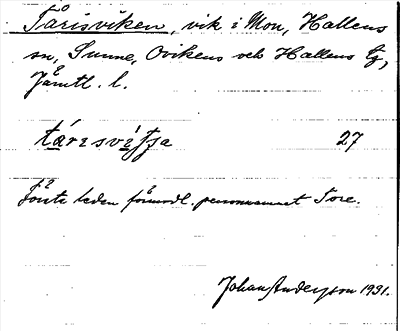 Tårisviken, vik i Mon, Hallens
sn, Sunne, Ovikens och Hallens tg,
Jämtl. l.
tárɪsvìʃʃa 27
Förste leden förmodl. personnamnet Tore.
Johan Andersson 1931.